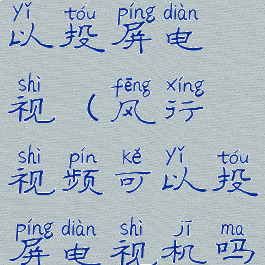 yǐ tóu píng diàn
以投屏电
shì fēng xíng
视（风行
shì pín kě yǐ tóu
视频可以投
píng diàn shì jī ma
屏电视机吗